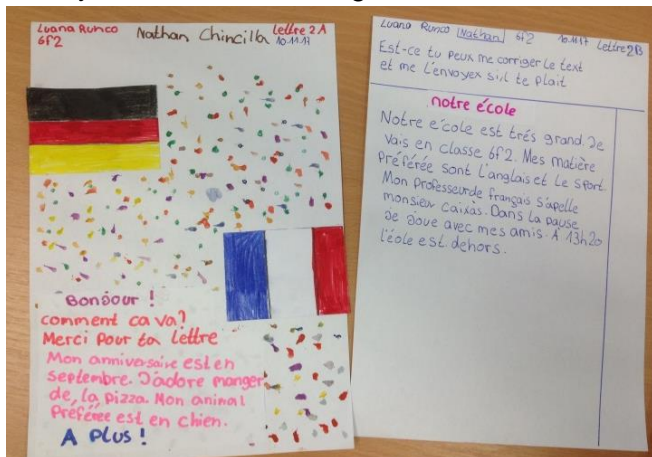 Luana Runco
6f2
Nathan Chincilla
Lettre 2A
10.11.17
Bonjour !
comment ca va?
Merci pour ta lettre
Mon anniversaire est en
septembre. J'adore manger
de la pizza. Mon animal
Préférée est en chien.
A Plus !
Luana Runco Nathan 6f2 10.11.17 Lettre 2B
Est-ce tu peux me corriger le text
et me l'envoyex s.i.l te plait
notre école
Notre école est trés grand. Je
vais en classe 6f2. Mes matière
Préférée sont l'anglais et le sport.
Mon professeur de français s'apelle
monsieur caixas. Dans la pause
Je joue avec mes amis. A 13h20
l'école est dehors.